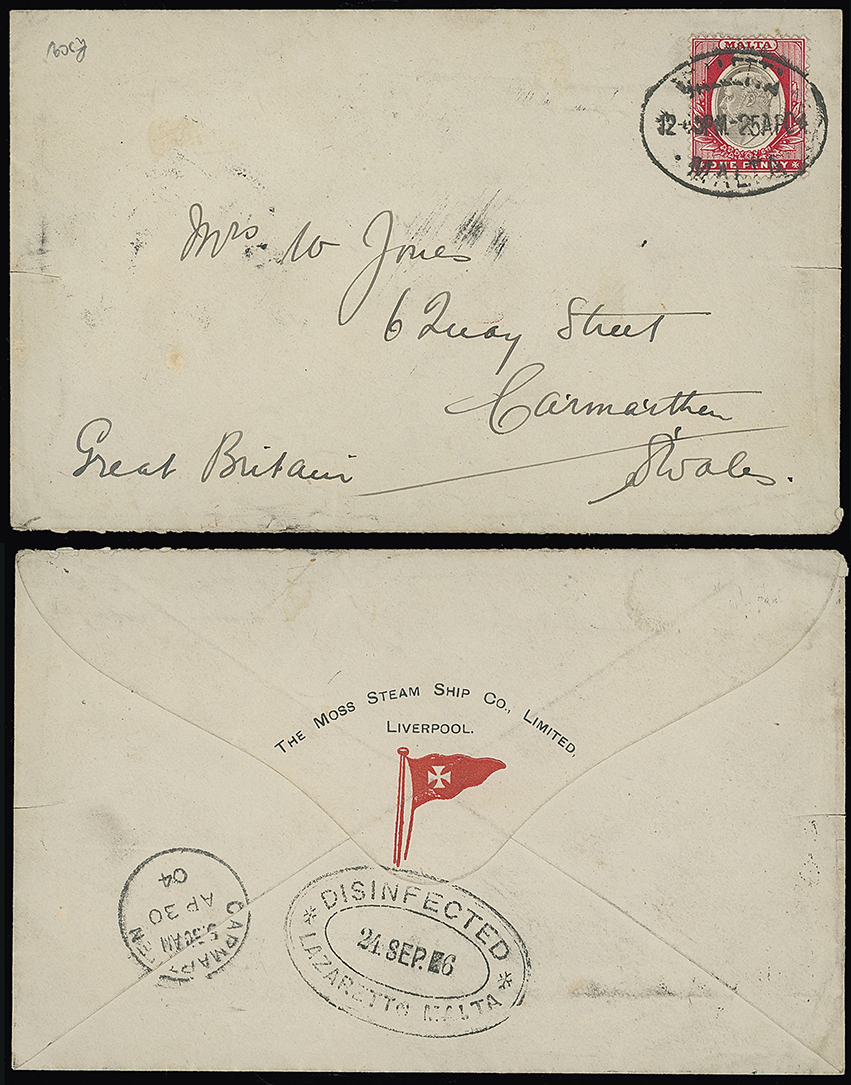 MALTA
VALLETTA
12-3PM-25AP04
MALTA
ONE PENNY
Mrs W Jones
6 Quay Street
Carmarthen
Great Britain
S Wales.
THE MOSS STEAM SHIP CO., LIMITED,
LIVERPOOL.
CARMARTHEN
5.30AM
AP 30
04
DISINFECTED
24 SEP. 6
LAZARETTO MALTA